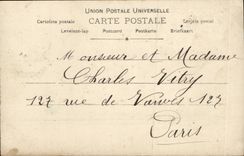 UNION POSTALE UNIVERSELLE
CARTE POSTALE
Cartolina postale
Levelezo-lap Postcard Postkarte Briefkaart
Monsieur et Madame
Charles Vitry
127 rue de Vanves 127
Paris